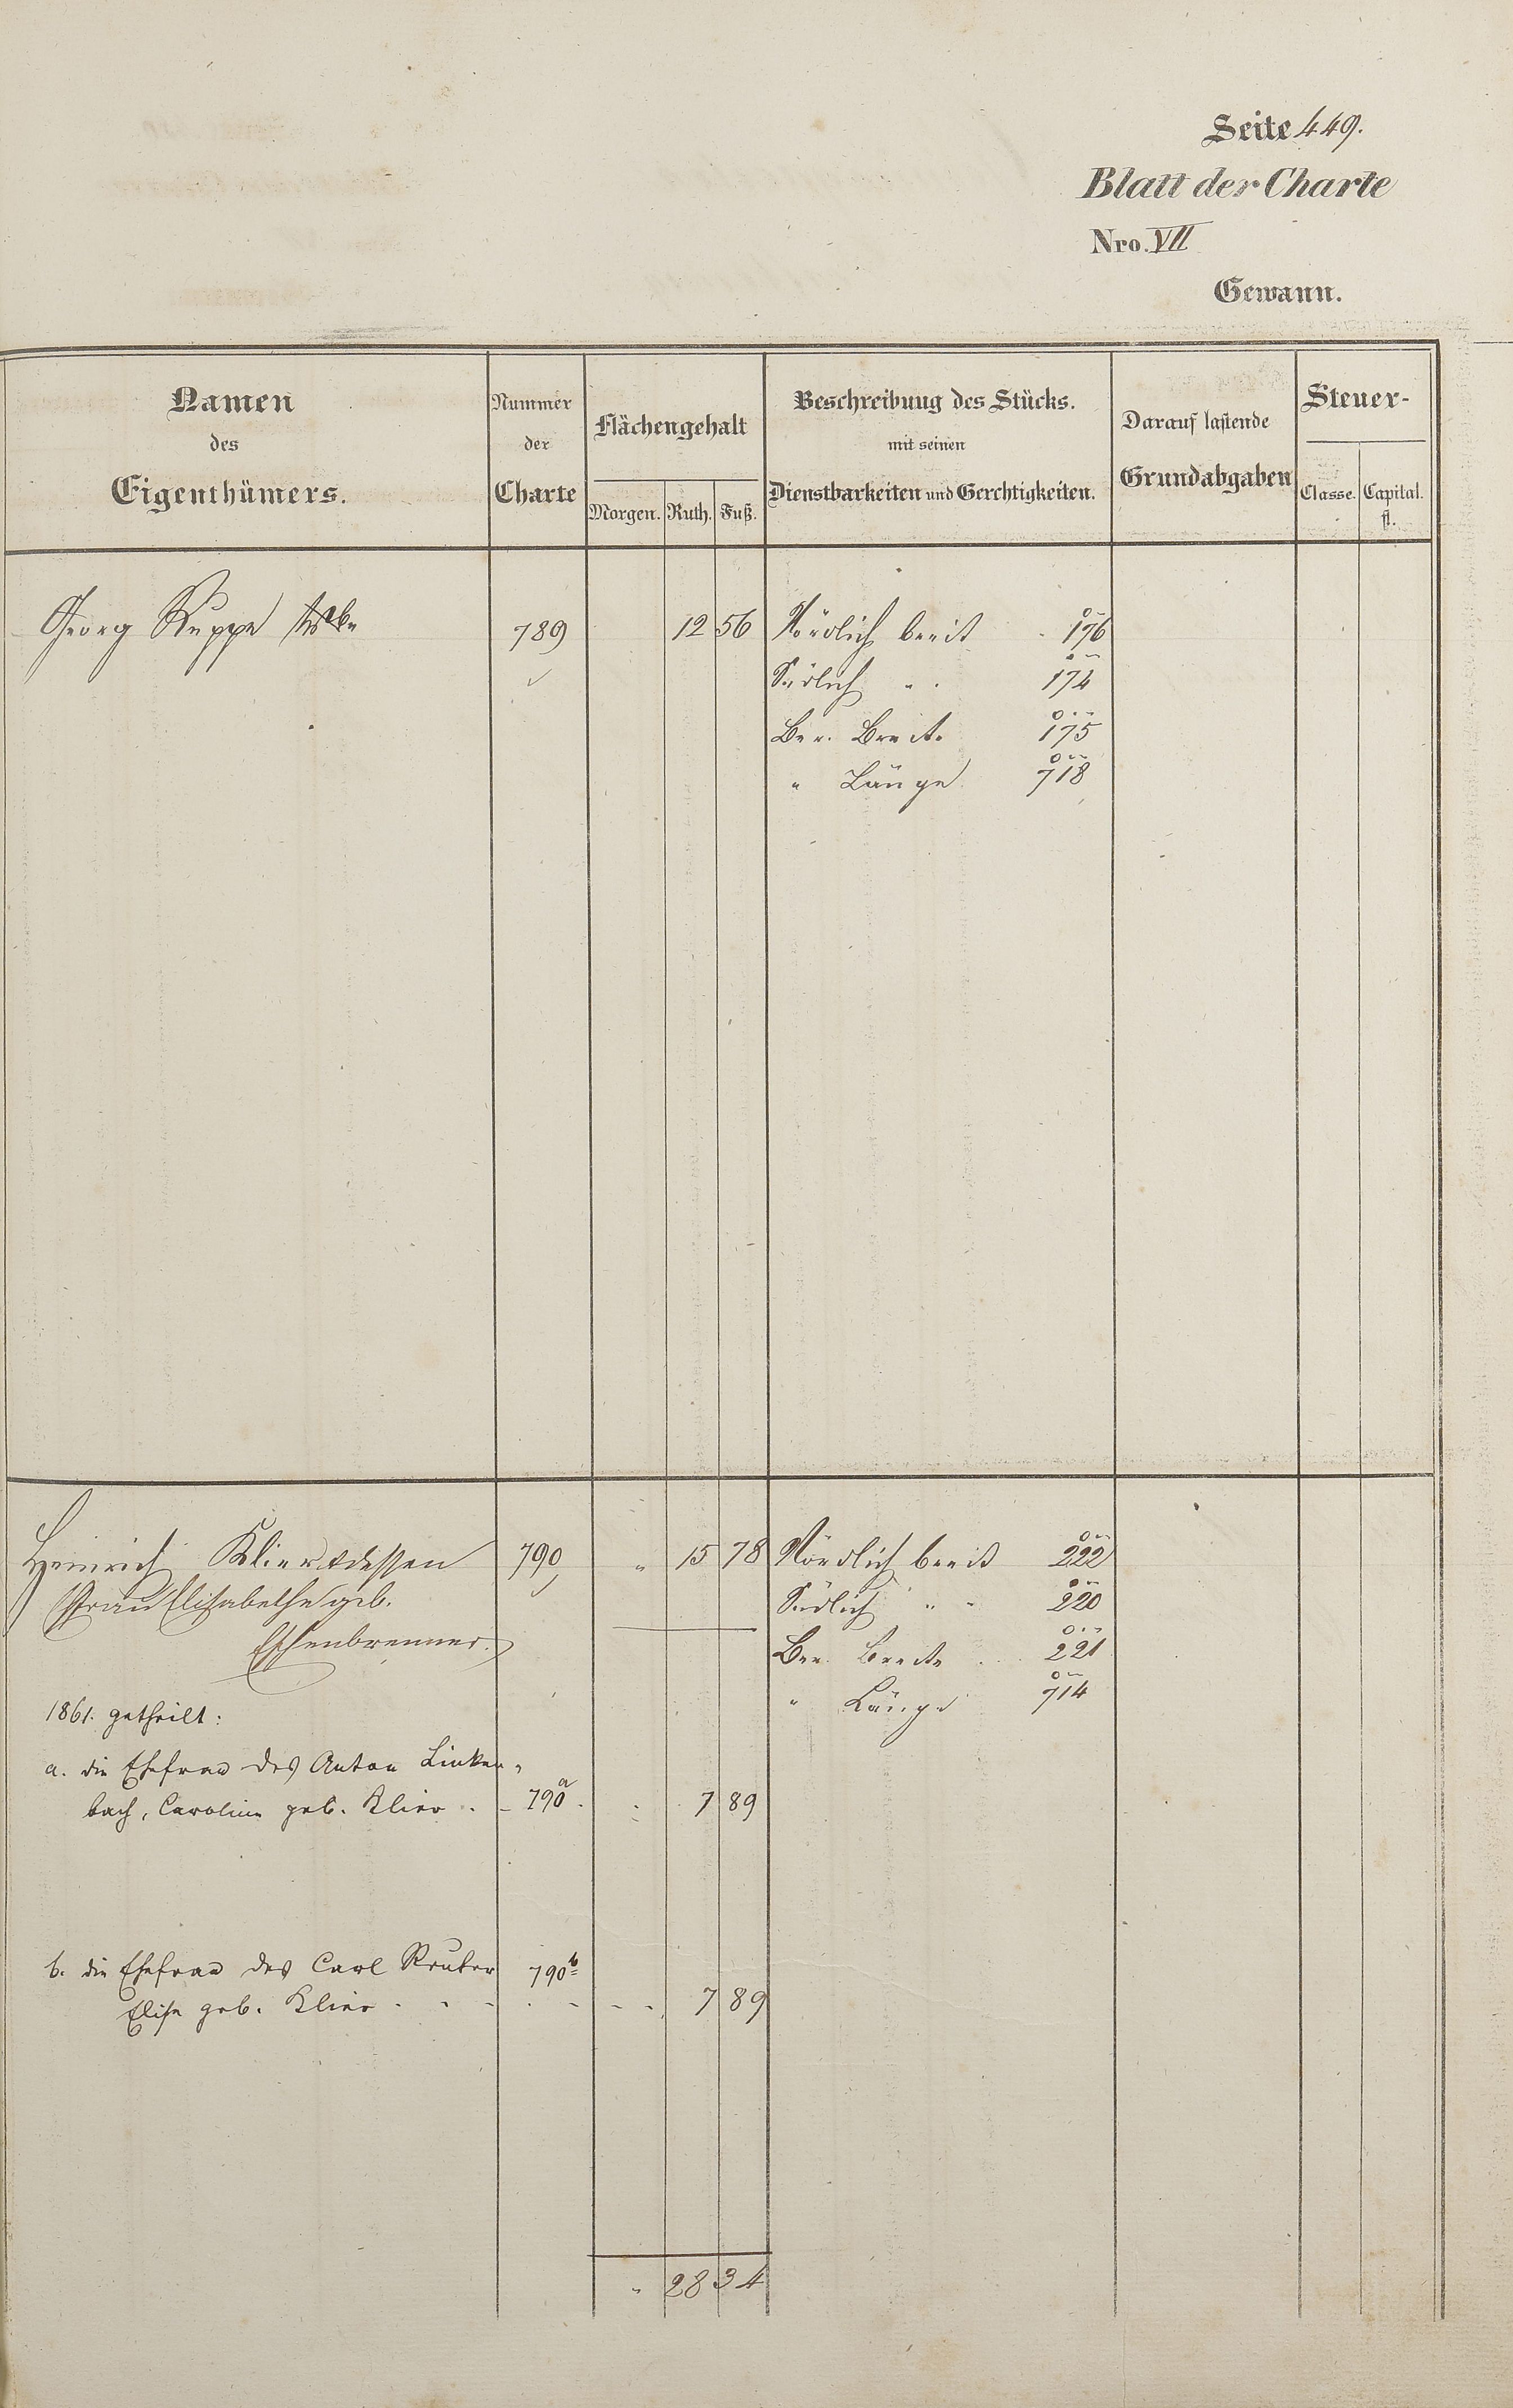 Seite 449.
Blatt der Charte
Nro. VII
Gewann.
Namen
des
Eigenthümers.
Nummer
der
Charte
Flächengehalt
Morgen. Ruth. Fuß.
Beschreibung des Stücks.
mit seinen
Dienstbarkeiten und Gerchtigkeiten.
Darauf lastende
Grundabgaben
Steuer-
Classe. Capital.
fl.
Georg Ruppe 789 12 56 Nördlich breit 176
Südlich " " 174
Ber. Breite 175
" Länge 718
Heinrich Klier & dessen 790 " 15 78 Nördlich breit 222
Frau Elisabethe geb. Südlich " " 220
Eschenbrenner. Ber. Breite 221
" Länge 714
1861. getheilt:
a. die Ehefrau des Anton Linken-
bach, Caroline geb. Klier . - 790a . 7 89
b. die Ehefrau des Carl Reuter 790b
Elise geb. Klier . - - . - - - 7 89
" 28 34